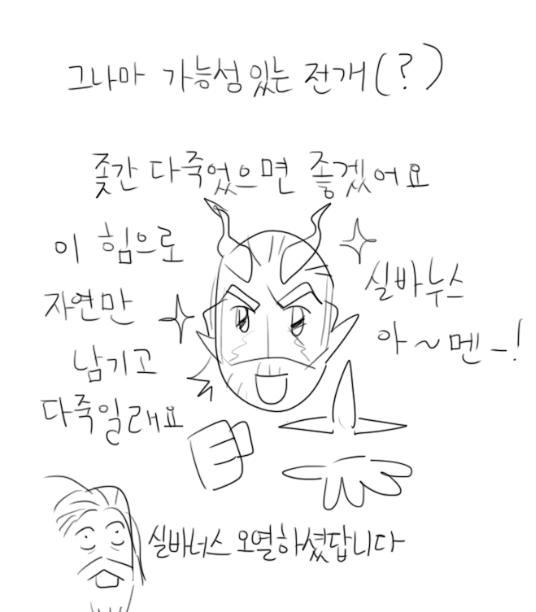 그나마 가능성 있는 전개(?)
좆간 다죽었으면 좋겠어요
이 힘으로
자연만
남기고
다죽일래요
실바누스
아~멘-!
실바너스 오열하셨답니다